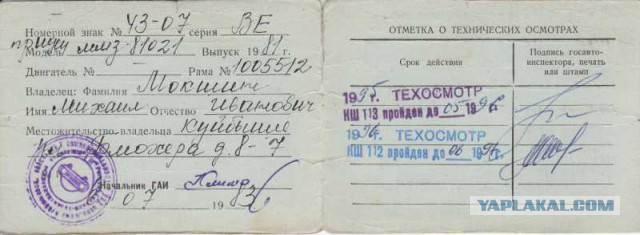 Номерной знак № 43-07 серия ВЕ
прицеп ммз-81021
Модель Выпуск 1981 г.
Двигатель № Рама № 1005512
Владелец: Фамилия Мокшин
Имя Михаил Отчество Иванович
Местожительство владельца Куйбышев
д. 8-7
Начальник ГАИ
07 19
ОТМЕТКА О ТЕХНИЧЕСКИХ ОСМОТРАХ
Срок действия
Подпись госавто-
инспектора, печать
или штамп
1995г. ТЕХОСМОТР
КШ 113 пройден до 05 1996
1996г. ТЕХОСМОТР
КШ 112 пройден до 06 199
YAPLAKAL.COM